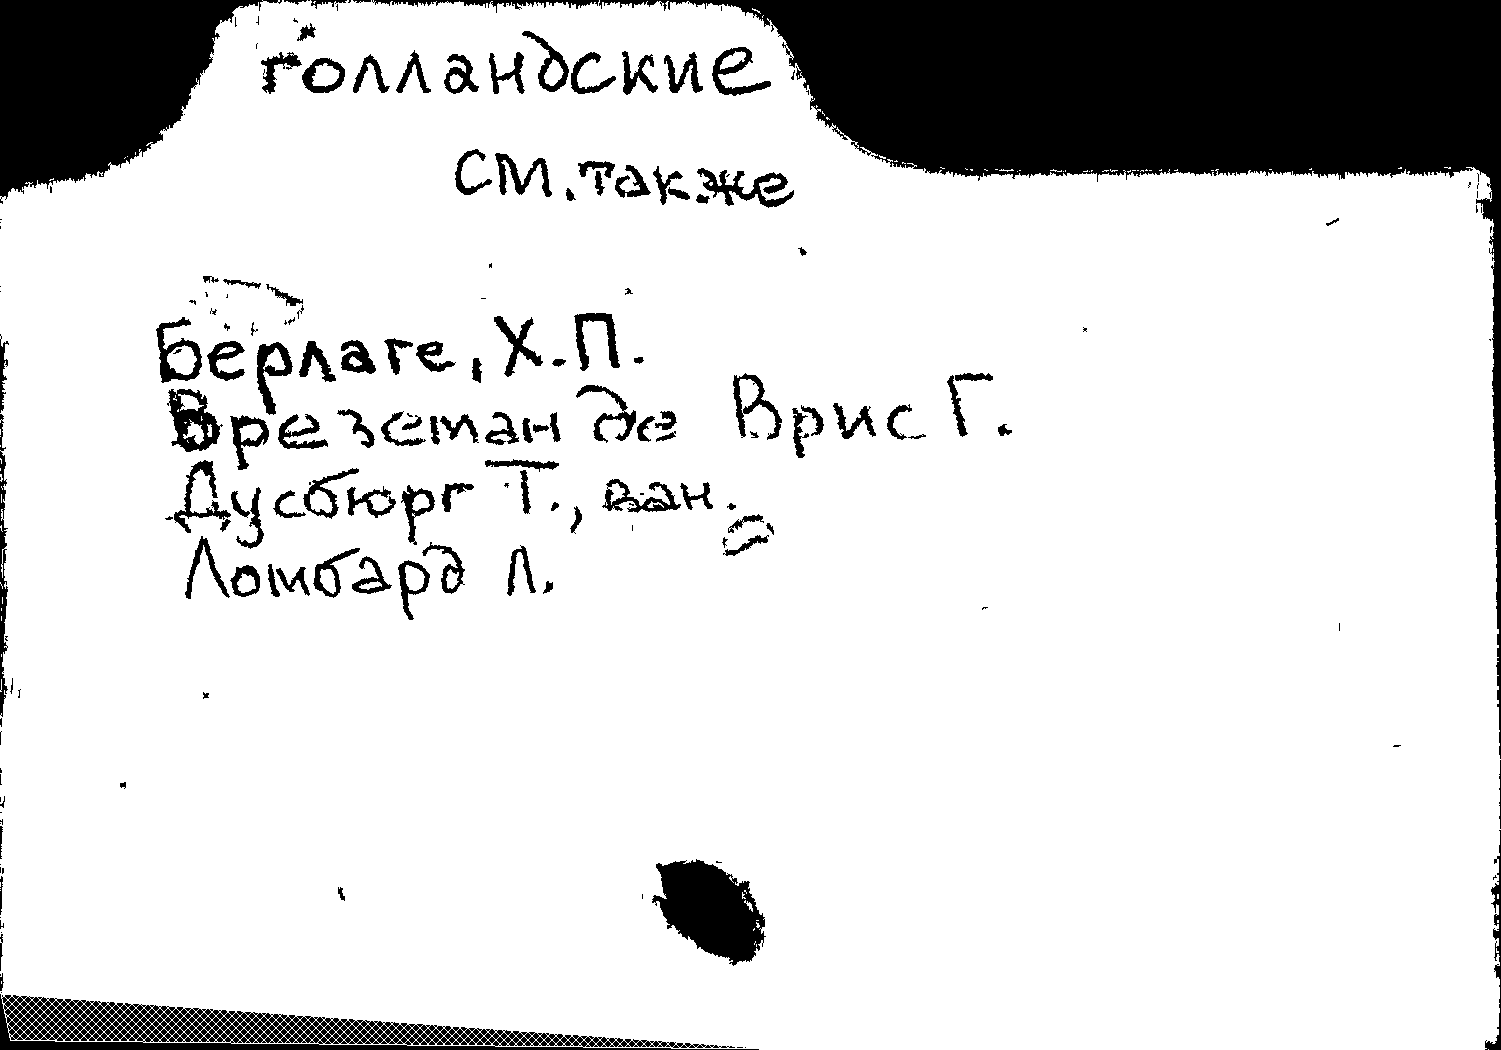 голландские
см. также
Берлаге, Х.П.
Врезетан де Врис Г.
Дусбюрг Т., ван.
Ломбард Л.